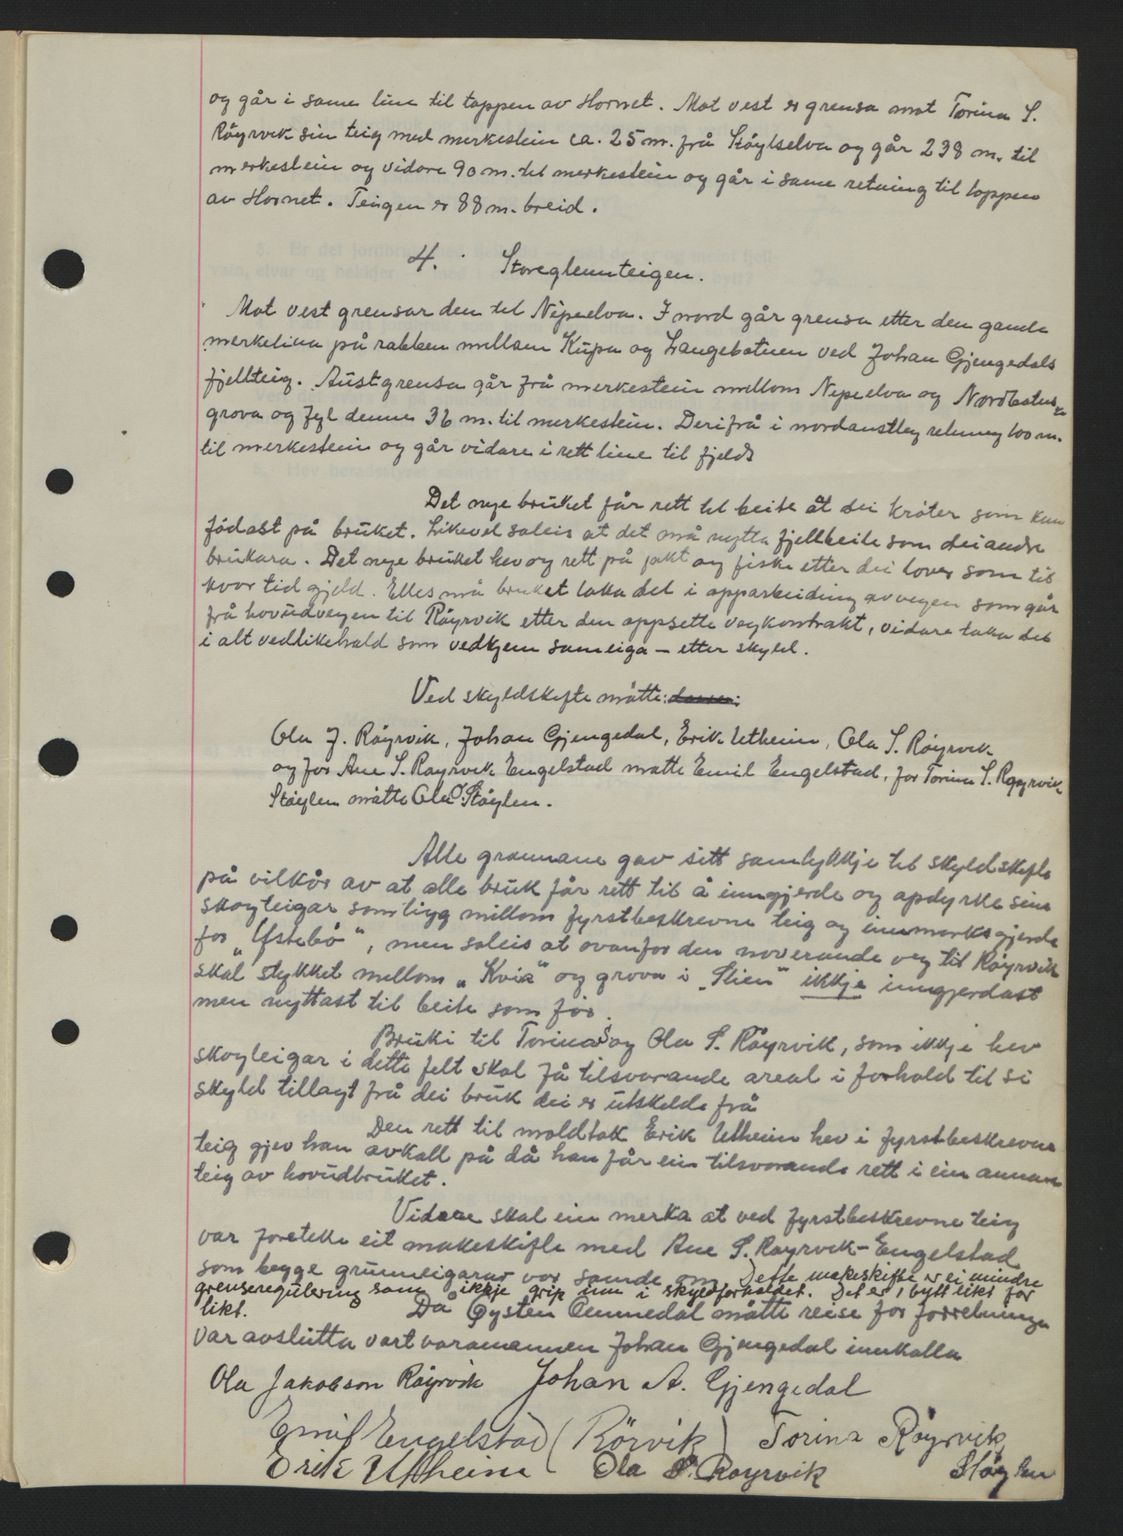 og går i same line til toppen av Hornet. Mot vest er grensa mot Torina S.
Röyrvik sin teig med merkestein ca. 25 m. frå Stöylselva og går 238 m. til
merkestein og vidare 90 m. til merkestein og går i same retning til toppen
av Hornet. Teigen er 88 m. breid.
4. Storeglennteigen.
Mot vest grensar den til Nipeelva. I nord går grensa etter den gamle
merkelina på rabben millom Kupa og Langebotnen ved Johan Gjengedals
fjellteig. Austgrensa går frå merkestein millom Nipeelva og Nordbotns-
grova og fyl denne 36 m. til merkestein. Derifrå i nordaustleg retning 100 m.
til merkestein og går vidare i rett line til fjells
Det nye bruket får rett til beite åt dei kröter som kan
födast på bruket. Likevel soleis at det må nytta fjellbeite som dei andre
brukara. Det nye bruket hev og rett på jakt og fiske etter dei lover som til
kvar tid gjeld. Elles må bruket taka del i opparbeiding av vegen som går
frå hovudvegen til Röyrvik etter den oppsette vegkontrakt, vidare taka del
i alt vedlikehald som vedkjem sameiga – etter skyld.
Ved skyldskifte måtte:
Ola J. Röyrvik, Johan Gjengedal, Erik Utheim, Ola S. Röyrvik
og for Ane S. Rayrvik Engelstad møtte Emil Engelstad, for Torina S. Røyrvik
Stöylen måtte Ola O. Stöylen.
Alle grannane gav sitt samtykkje til skyldskifte
på vilkår av at alle bruk får rett til å inngjerde og opdyrke sine
skogteigar som ligg millom fyrstbeskrevne teig og innmarksgjerde
for „Ystebö“, men soleis at ovanfor den noverande veg til Röyrvik
skal stykket mellom „Kvia“ og grova i „Slien“ ikkje inngjerdast
men nyttast til beite som för.
Bruki til Torina S og Ola S. Röyrvik, som ikkje hev
skogteigar i dette felt skal få tilsvarande areal i forhold til si
skyld tillagt frå dei bruk dei er utskilde frå
Den rett til moldtak Erik Utheim hev i fyrstbeskrevne
teig gjev han avkall på då han får ein tilsvarande rett i ein annan
teig av hovudbruket.
Vidare skal ein merka at ved fyrstbeskrevne teig
var foreteke eit makeskifte med Ane S. Røyrvik-Engelstad
som begge grunneigarar var samde om. Dette makeskifte er ei mindre
grenseregulering som ikkje grip inn i skyldforholdet. Det er bytt likt for
likt. Då Øysten Ommedal måtte reise før forretninga
var avslutta vart varamannen Johan Gjengedal innkalla
Ola Jakobson Röyrvik Johan A. Gjengedal
Emil Engelstad (Rörvik) Torina Röyrvik
Erik Utheim Ola S. Röyrvik Stöylen